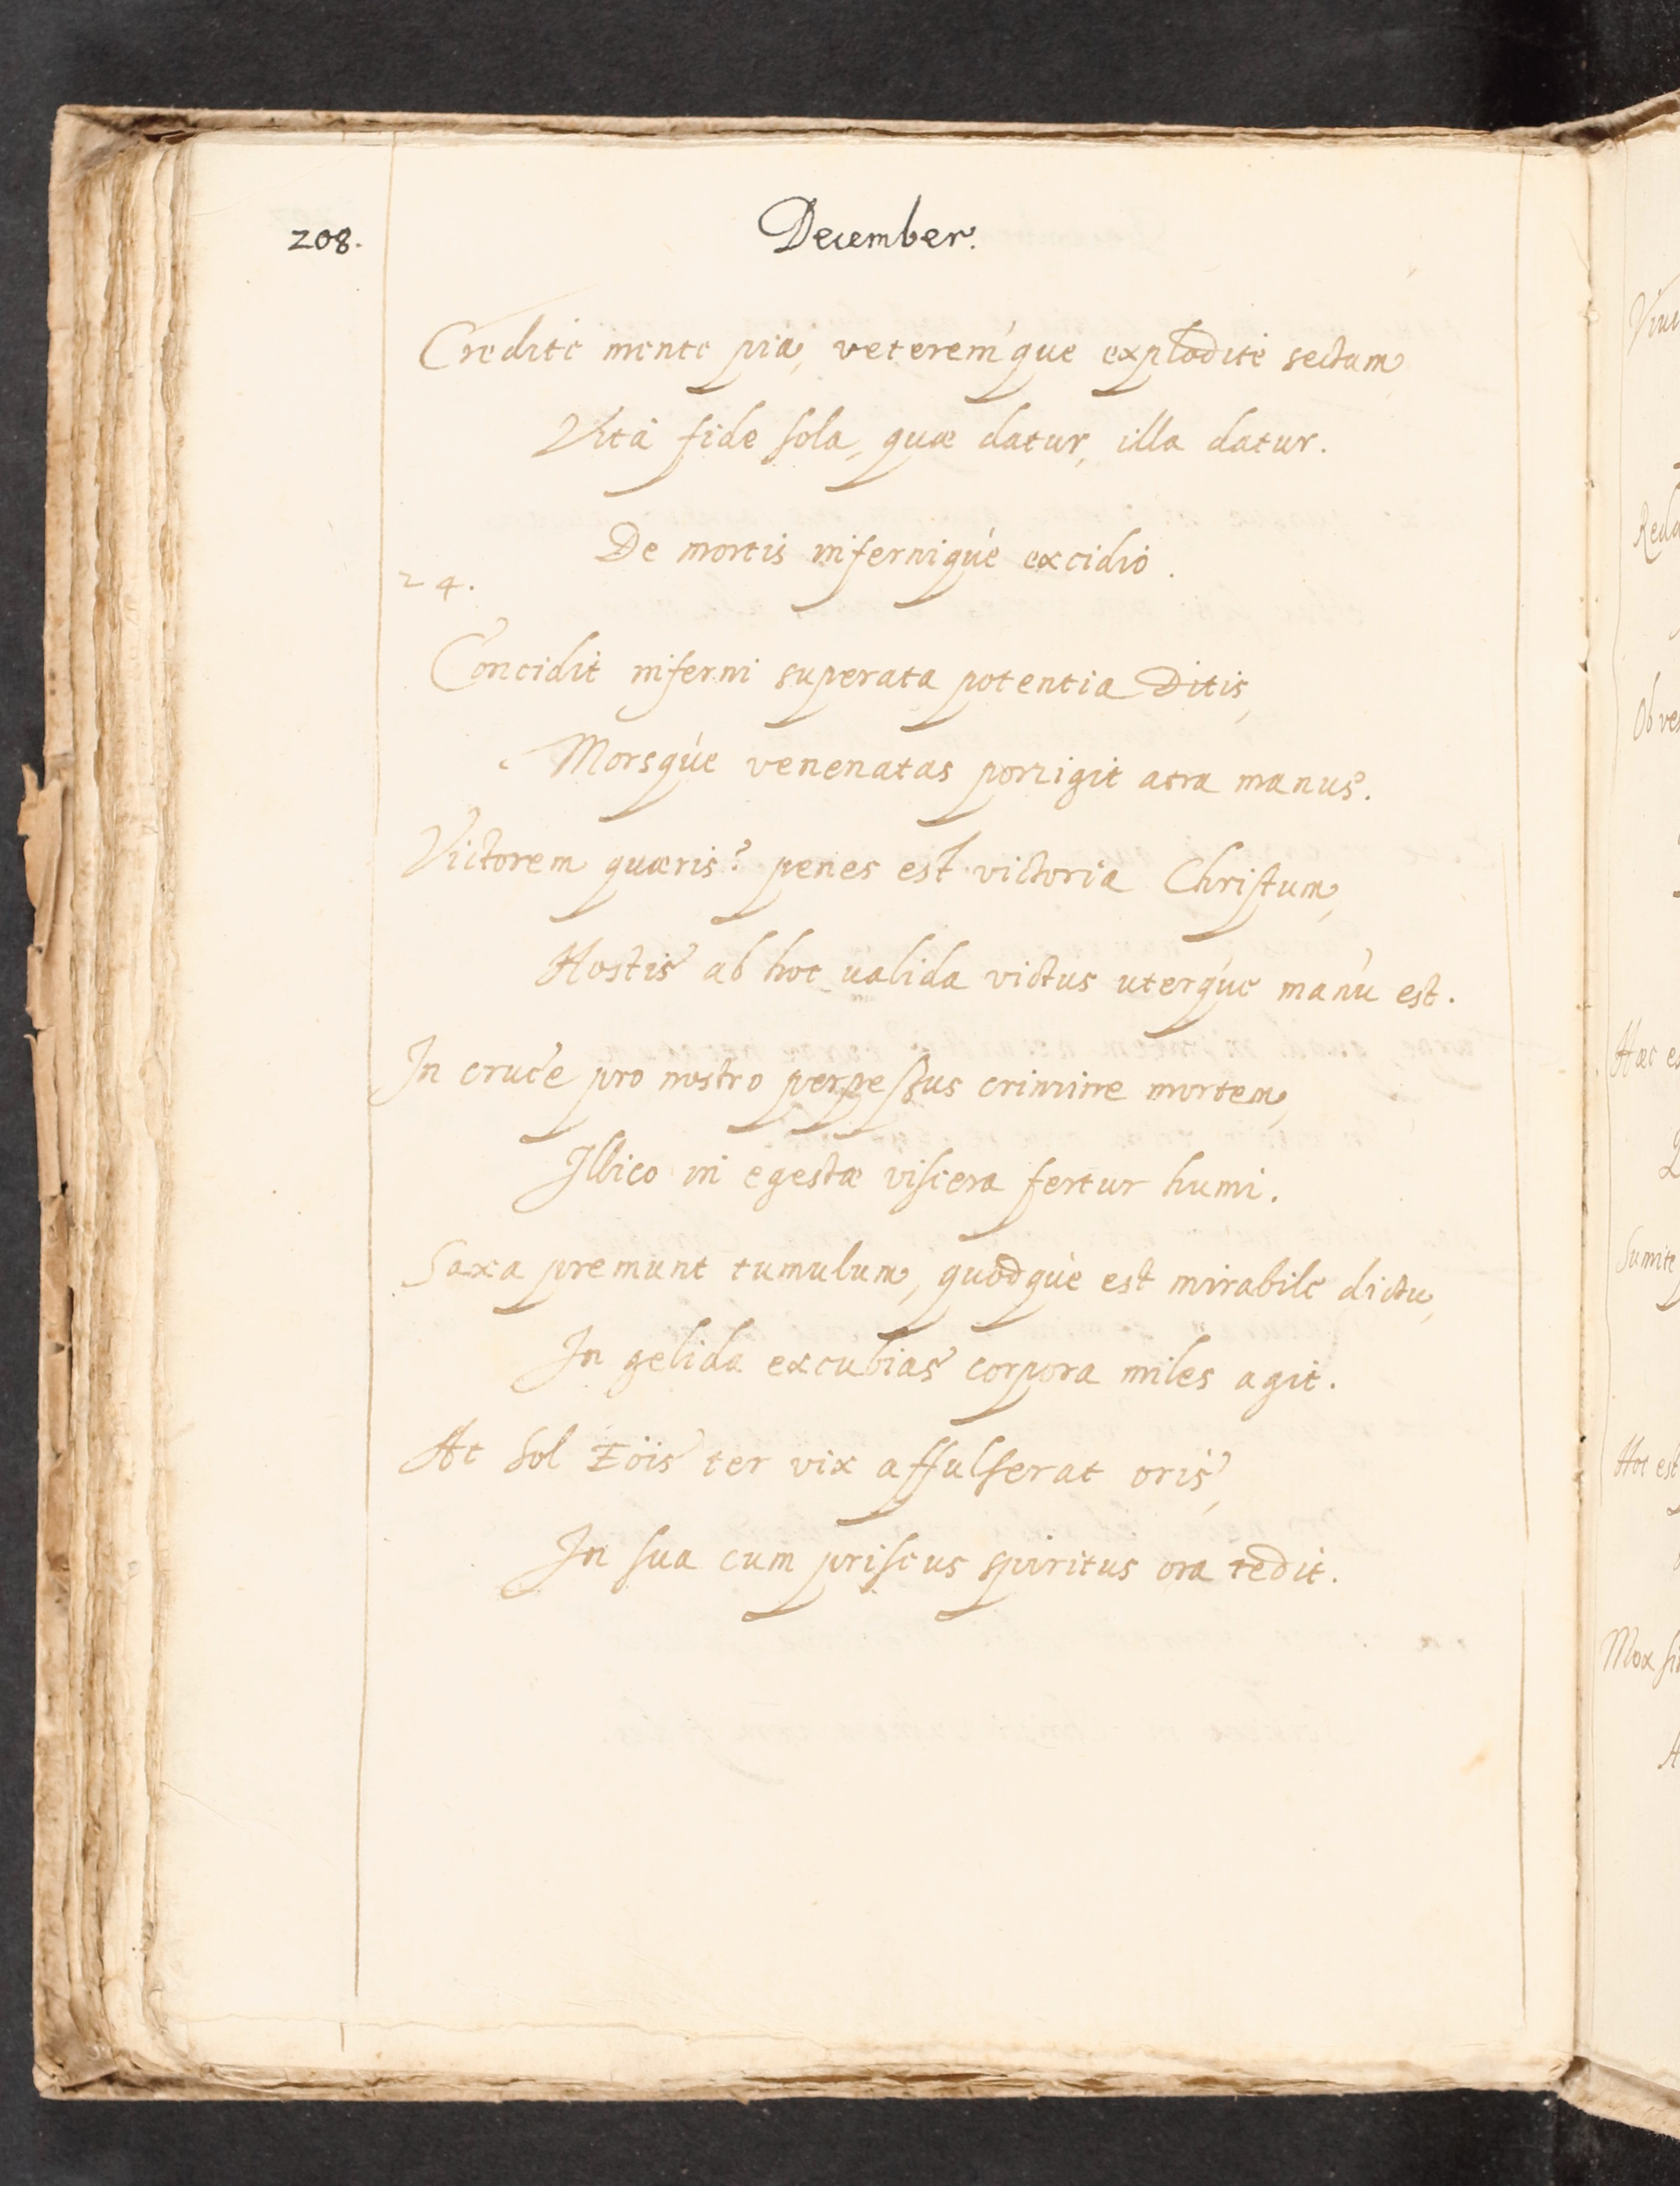 208.
December.
Credite mente pia, veterem'que explodite sectam,
Vita fide sola, quæ datur, illa datur.
De mortis infernique excidio.
24.
Concidit inferni superata potentia Ditis,
Morsque venenatas porrigit atra manus.
Victorem quæris? penes est victoria Christum,
Hostis ab hoc valida victus uterque manu est.
In cruce pro nostro perpessus crimine mortem,
Illico in egestæ viscera fertur humi.
Saxa premunt tumulum, quodque est mirabile dictu,
In gelida excubias corpora miles agit.
At Sol Eöis ter vix affulserat oris,
In sua cum priscus spiritus ora redit.
Redd
Ob ve
Hæc es
Sumite
Hoc est
Mox si